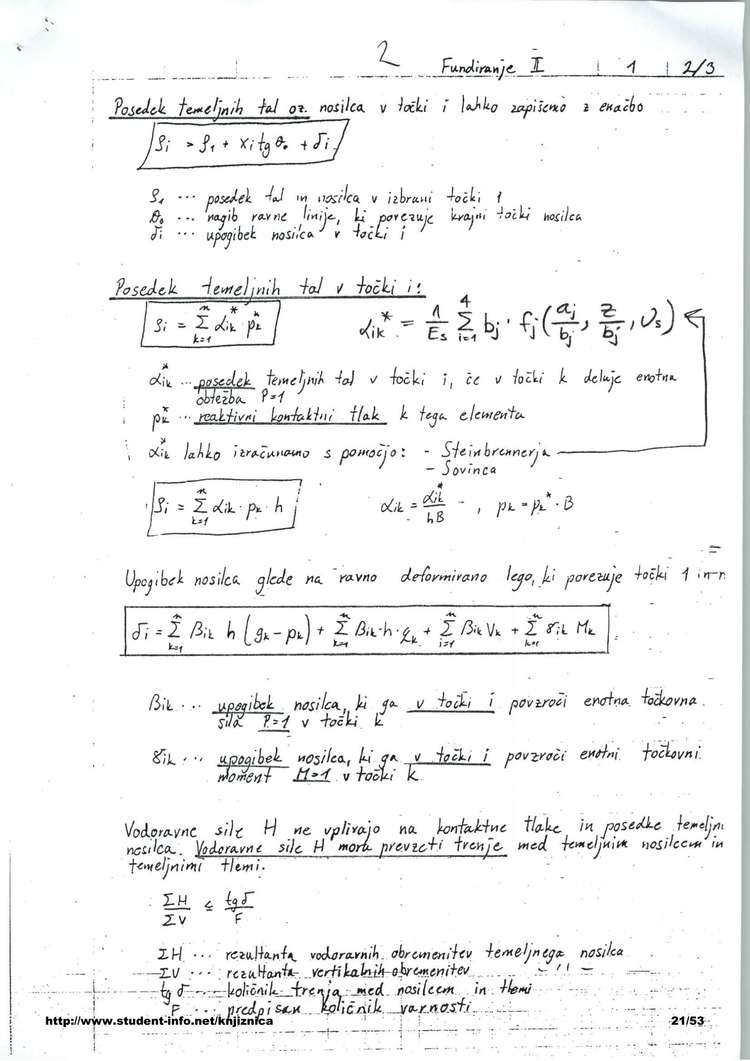 2
Fundiranje II 1 2/3
Posedek temeljnih tal oz. nosilca v točki i lahko zapišemo z enačbo
ρi = ρ1 + xi tg θ0 + δi
ρ1 ... posedek tal in nosilca v izbrani točki 1
θ0 ... nagib ravne linije, ki povezuje krajni točki nosilca
δi ... upogibek nosilca v točki i
Posedek temeljnih tal v točki i:
ρi = Σ(k=1..n) αik* pk* αik* = 1/Es Σ(i=1..4) bj · fj (aj/bj, z/bj, υs)
αik* ... posedek temeljnih tal v točki i, če v točki k deluje enotna
obtežba P=1
pk* ... reaktivni kontaktni tlak k tega elementa
αik* lahko izračunamo s pomočjo: - Steinbrennerja
- Sovinca
ρi = Σ(k=1..n) αik · pk · h αik = αik*/hB , pk = pk* · B
Upogibek nosilca glede na ravno deformirano lego, ki povezuje točki 1 in n
δi = Σ(k=1..n) βik h (gk - pk) + Σ(k=1..n) βik · h · qk + Σ(i=1..n) βik Vk + Σ(k=1..n) γik Mk
βik ... upogibek nosilca, ki ga v točki i povzroči enotna točkovna
sila P=1 v točki k
γik ... upogibek nosilca, ki ga v točki i povzroči enotni točkovni
moment M=1 v točki k
Vodoravne sile H ne vplivajo na kontaktne tlake in posedke temeljn
nosilca. Vodoravne sile H mora prevzeti trenje med temeljnim nosilcem in
temeljnimi tlemi.
ΣH/ΣV ≤ tg δ/F
ΣH ... rezultanta vodoravnih obremenitev temeljnega nosilca
ΣV ... rezultanta vertikalnih obremenitev -- " --
tg δ ... količnik trenja med nosilcem in tlemi
F ... predpisan količnik varnosti
http://www.student-info.net/knjiznica 21/53